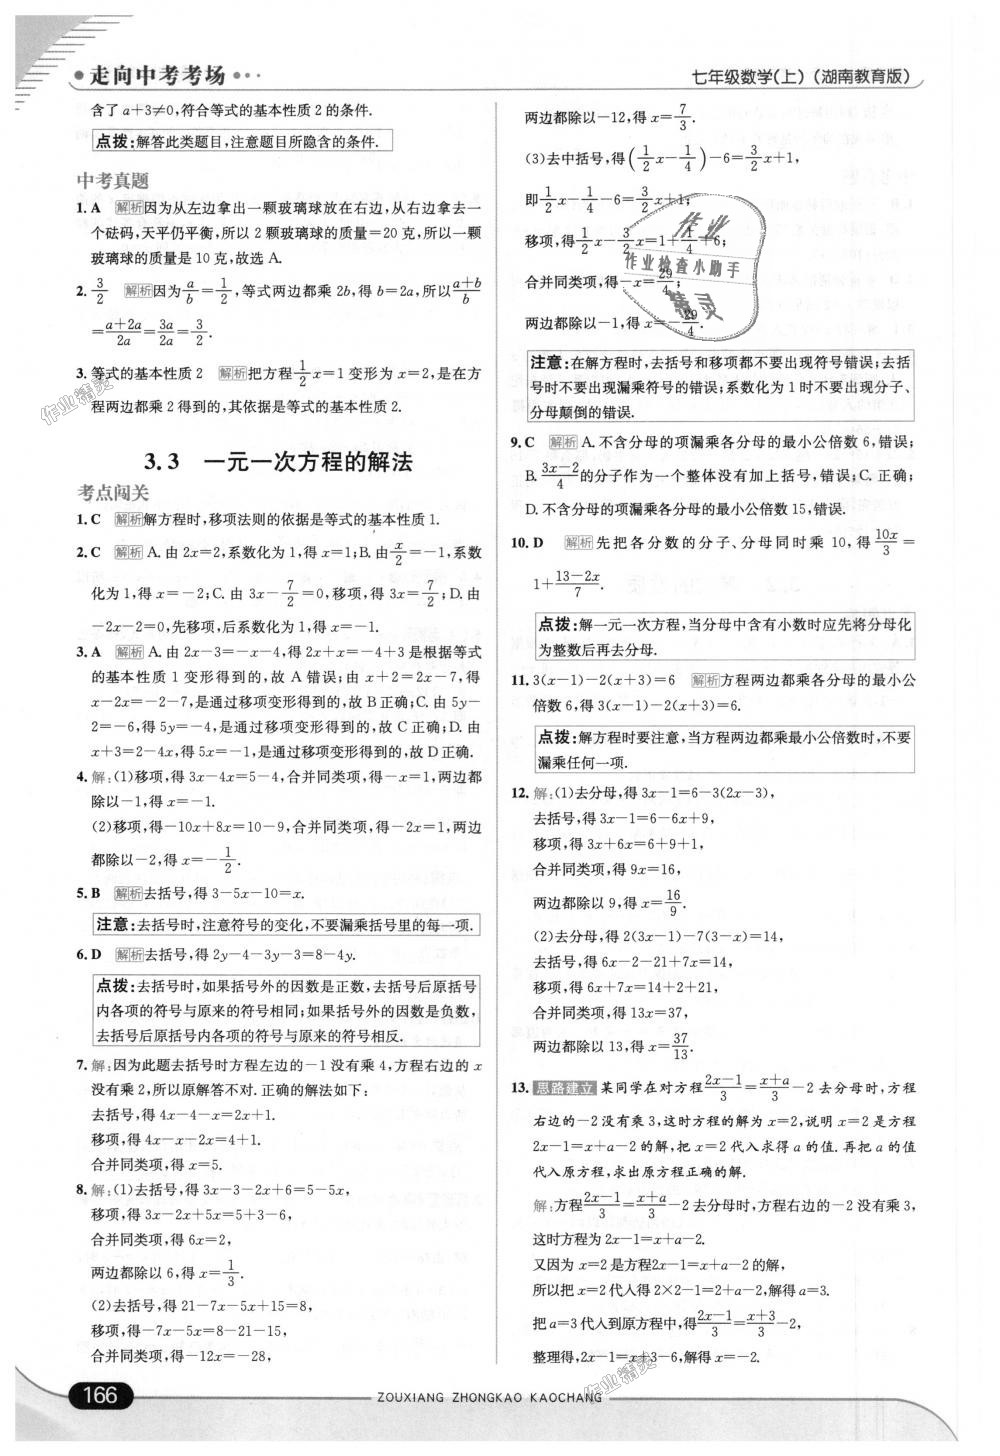 走向中考考场
七年级数学(上)(湖南教育版)
含了 a+3≠0,符合等式的基本性质 2 的条件.
点拨:解答此类题目,注意题目所隐含的条件.
中考真题
1. A 解析因为从左边拿出一颗玻璃球放在右边,从右边拿去一
个砝码,天平仍平衡,所以 2 颗玻璃球的质量=20 克,所以一颗
玻璃球的质量是 10 克,故选 A.
2. 3/2 解析因为 a/b = 1/2 ,等式两边都乘 2b,得 b=2a,所以 (a+b)/b
= (a+2a)/2a = 3a/2a = 3/2 .
3. 等式的基本性质 2 解析把方程 1/2 x=1 变形为 x=2,是在方
程两边都乘 2 得到的,其依据是等式的基本性质 2.
3.3 一元一次方程的解法
考点闯关
1. C 解析解方程时,移项法则的依据是等式的基本性质 1.
2. C 解析 A. 由 2x=2,系数化为 1,得 x=1;B. 由 x/2 =-1,系数
化为 1,得 x=-2;C. 由 3x- 7/2 =0,移项,得 3x= 7/2 ;D. 由
-2x-2=0,先移项,后系数化为 1,得 x=-1.
3. A 解析 A. 由 2x-3=-x-4,得 2x+x=-4+3 是根据等式
的基本性质 1 变形得到的,故 A 错误;由 x+2=2x-7,得
x-2x=-2-7,是通过移项变形得到的,故 B正确;C. 由 5y-
2=-6,得 5y=-4,是通过移项变形得到的,故 C 正确;D. 由
x+3=2-4x,得 5x=-1,是通过移项变形得到的,故 D正确.
4. 解:(1)移项,得 3x-4x=5-4,合并同类项,得-x=1,两边都
除以-1,得 x=-1.
(2)移项,得-10x+8x=10-9,合并同类项,得-2x=1,两边
都除以-2,得 x=- 1/2 .
5. B 解析去括号,得 3-5x-10=x.
注意:去括号时,注意符号的变化,不要漏乘括号里的每一项.
6. D 解析去括号,得 2y-4-3y-3=8-4y.
点拨:去括号时,如果括号外的因数是正数,去括号后原括号
内各项的符号与原来的符号相同;如果括号外的因数是负数,
去括号后原括号内各项的符号与原来的符号相反.
7. 解:因为此题去括号时方程左边的-1 没有乘 4,方程右边的 x
没有乘 2,所以原解答不对. 正确的解法如下:
去括号,得 4x-4-x=2x+1.
移项,得 4x-x-2x=4+1.
合并同类项,得 x=5.
8. 解:(1)去括号,得 3x-3-2x+6=5-5x,
移项,得 3x-2x+5x=5+3-6,
合并同类项,得 6x=2,
两边都除以 6,得 x= 1/3 .
(2)去括号,得 21-7x-5x+15=8,
移项,得-7x-5x=8-21-15,
合并同类项,得-12x=-28,
两边都除以-12,得 x= 7/3 .
(3)去中括号,得( 1/2 x- 1/4 )-6= 3/2 x+1,
即 1/2 x- 1/4 -6= 3/2 x+1,
移项,得 1/2 x- 3/2 x=1+ 1/4 +6;
合并同类项,得-x= 29/4 ,
两边都除以-1,得 x=- 29/4 .
注意:在解方程时,去括号和移项都不要出现符号错误;去括
号时不要出现漏乘符号的错误;系数化为 1 时不要出现分子、
分母颠倒的错误.
9. C 解析 A. 不含分母的项漏乘各分母的最小公倍数 6,错误;
B. (3x-2)/4 的分子作为一个整体没有加上括号,错误;C. 正确;
D. 不含分母的项漏乘各分母的最小公倍数 15,错误.
10. D 解析先把各分数的分子、分母同时乘 10,得 10x/3 =
1+ (13-2x)/7 .
点拨:解一元一次方程,当分母中含有小数时应先将分母化
为整数后再去分母.
11. 3(x-1)-2(x+3)=6 解析方程两边都乘各分母的最小公
倍数 6,得 3(x-1)-2(x+3)=6.
点拨:解方程时要注意,当方程两边都乘最小公倍数时,不要
漏乘任何一项.
12. 解:(1)去分母,得 3x-1=6-3(2x-3),
去括号,得 3x-1=6-6x+9,
移项,得 3x+6x=6+9+1,
合并同类项,得 9x=16,
两边都除以 9,得 x= 16/9 .
(2)去分母,得 2(3x-1)-7(3-x)=14,
去括号,得 6x-2-21+7x=14,
移项,得 6x+7x=14+2+21,
合并同类项,得 13x=37,
两边都除以 13,得 x= 37/13 .
13. 思路建立 某同学在对方程 (2x-1)/3 = (x+a)/3 -2 去分母时,方程
右边的-2 没有乘 3,这时方程的解为 x=2,说明 x=2 是方程
2x-1=x+a-2 的解,把 x=2 代入求得 a 的值. 再把 a 的值
代入原方程,求出原方程正确的解.
解:方程 (2x-1)/3 = (x+a)/3 -2 去分母时,方程右边的-2 没有乘 3,
这时方程为 2x-1=x+a-2.
又因为 x=2 是方程 2x-1=x+a-2 的解,
所以把 x=2 代入得 2×2-1=2+a-2,解得 a=3.
把 a=3 代入到原方程中,得 (2x-1)/3 = (x+3)/3 -2,
整理得,2x-1=x+3-6,解得 x=-2.
作业
作业检查小助手
精灵
作业精灵
作业精灵
166
ZOUXIANG ZHONGKAO KAOCHANG